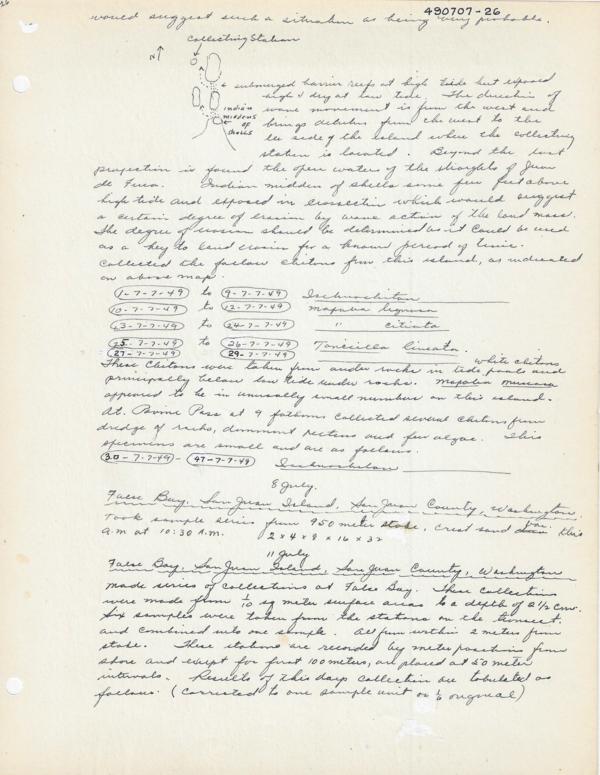 490707-26
would suggest such a situation as being very probable.
Collecting Station
N
submerged barrier reefs at high tide but exposed
high & dry at low tide. The direction of
wave movement is from the west and
brings debutus from the west to the
lee side of the island where the collecting
station is located. Beyond the last
Indian
middens
of
shells
projection is found the open waters of the straights of Juan
de Fuca. Indian midden of shells some few feet above
high tide and exposed in crossection which would suggest
a certain degree of erosion by wave action of the land mass.
The degree of erosion should be determined as it could be used
as a key to land erosion for a known period of time.
Collected the follow chitons from this island, as indicated
on above map.
1-7-7-49 to 9-7-7-49 Ischnochiton
10-7-7-49 to 12-7-7-49 Mopalia lignosa
13-7-7-49 to 24-7-7-49 " ciliata
25-7-7-49 to 26-7-7-49 Tonicella lineata.
27-7-7-49 29-7-7-49 white chitons
These chitons were taken from under rocks in tide pools and
principally below low tide under rocks. Mopalia muscosa
appeared to be in unusually small numbers on this island.
At Pass at 9 fathoms collected several chitons from
dredge of rocks, dominant pectens and few algae. This
specimens are small and are as follows.
30-7-7-49 - 47-7-7-49 Ischnochiton
8 July.
False Bay, San Juan Island, San Juan County, Washington.
Took sample series from 950 meter stake, crest sand bar, this
A.M at 10:30 A.M. 2 x 4 x 8 x 16 x 32
11 July
False Bay, San Juan Island, San Juan County, Washington
made series of collections at False Bay. These collections
were made from 1/10 sq meter surface areas to a depth of 2 1/2 cm.
Six samples were taken from the stations on the transect
and combined into one sample. All from within 2 meters from
stake. These stations are recorded by meter positions from
shore and except for first 100 meters, are placed at 50 meter
intervals. Results of this days collection are tabulated as
follows. (Corrected to one sample unit or 1/6 original)